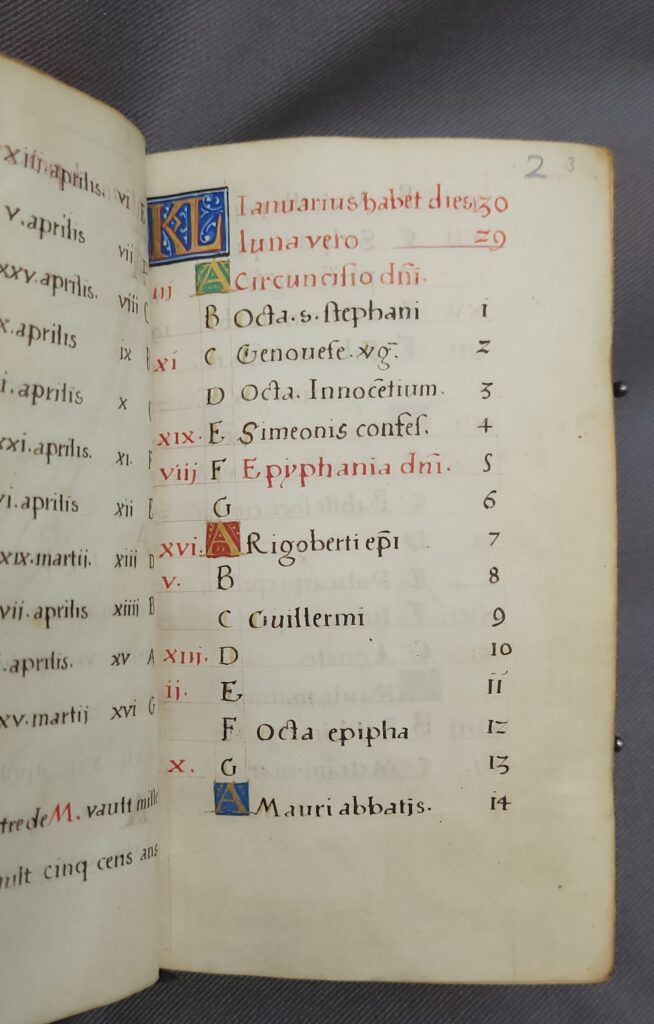 xiii.aprilis. vi E
v.aprilis vii. D
xxv.aprilis. viii C
x.aprilis ix B
i.aprilis x
xxi.aprilis. xi. F
vi.aprilis xii E
xix.martij. xiii D
vii.aprilis xiiii B
.aprilis. xv A
xv.martij xvi G
tre de M. vault mille
ault cinq cens ans
2 3
KL Ianuarius habet dies 30
luna vero 29
iij A Circuncisio dn̄i.
B Octa. s. stephani 1
xi C Genouefe. vg̃. 2
D Octa. Innocẽtium. 3
xix. E Simeonis confes. 4
viij F Epyphania dn̄i. 5
G 6
xvi. A Rigoberti ep̄i 7
v. B 8
C Guillermi 9
xiii. D 10
ij. E 11
F Octa epipha 12
x. G 13
A Mauri abbatis. 14